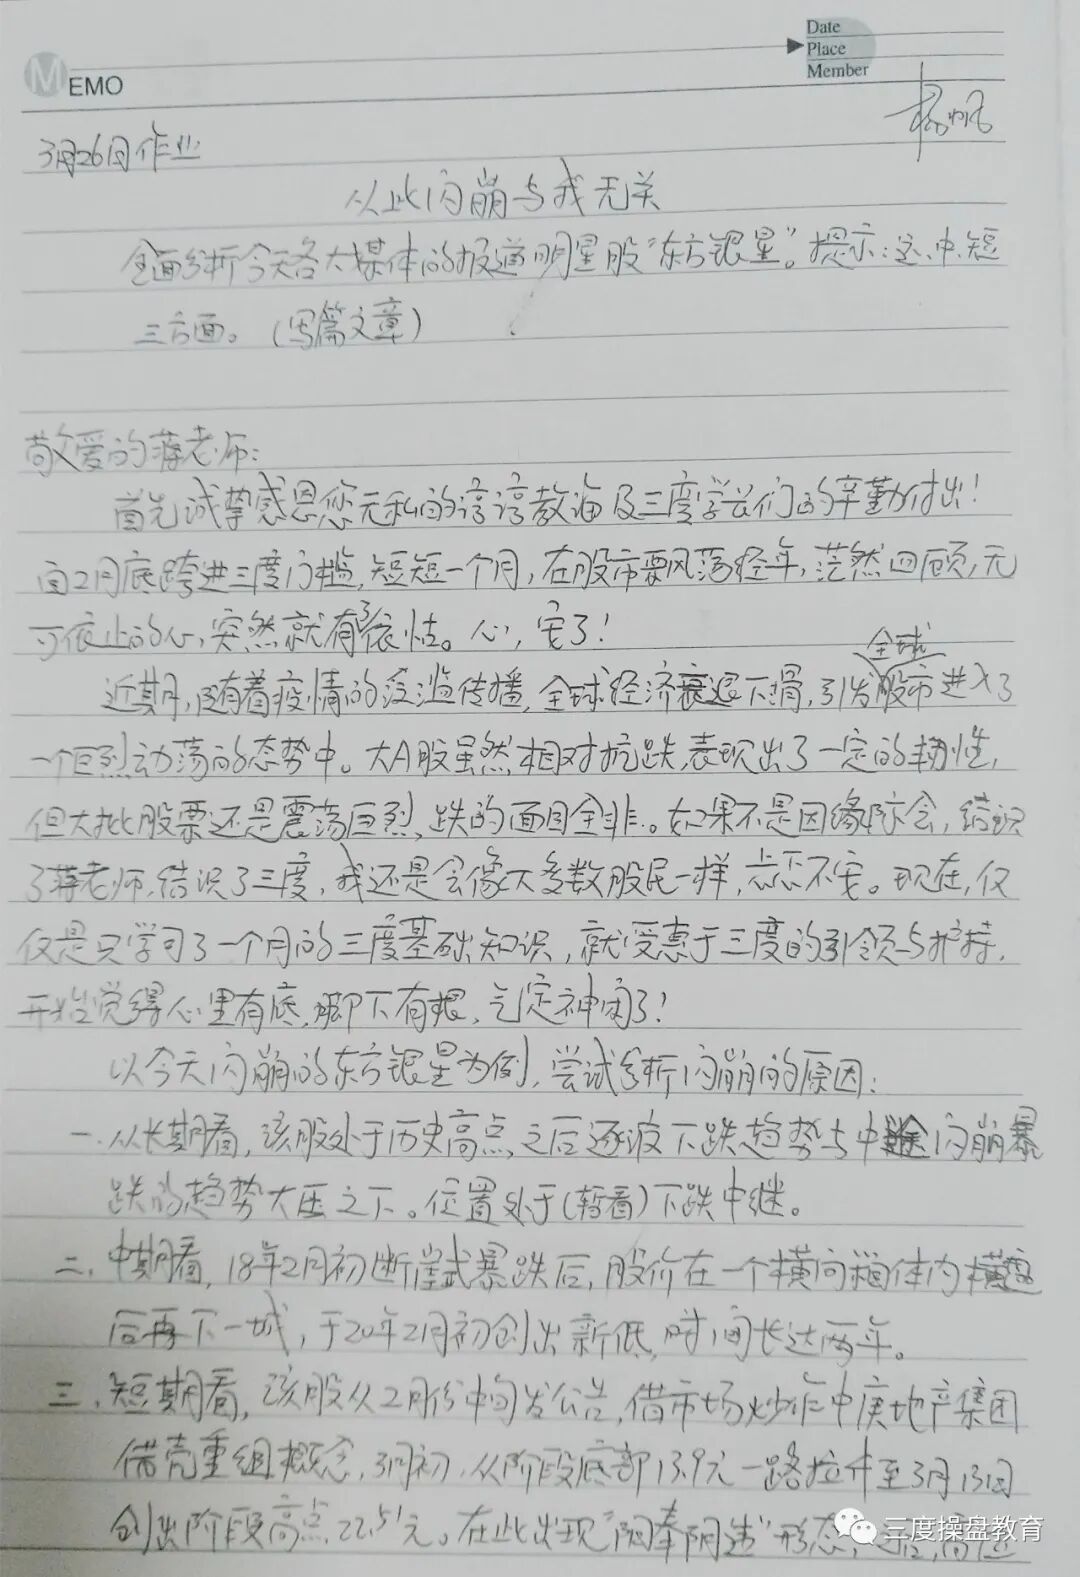 Date
Place
Member
MEMO
杨帆
3月26日作业
从此闪崩与我无关
全面分析今天各大媒体的报道明星股“东方银星”。提示:远、中、短
三方面。(写篇文章)
敬爱的蒋老师:
首先诚挚感恩您无私的谆谆教诲及三度学长们的辛勤付出!
自2月底跨进三度门槛,短短一个月,在股市飘荡经年,茫然回顾,无
可依止的心,突然就有了依怙。心,安了!
近期,随着疫情的泛滥传播,全球经济衰退下滑,引发全球股市进入了
一个巨烈动荡的态势中。大A股虽然相对抗跌,表现出了一定的韧性,
但大批股票还是震荡巨烈,跌的面目全非。如果不是因缘际会,结识
了蒋老师,结识了三度,我还是会像大多数股民一样,忐忑不安。现在,仅
仅是只学习了一个月的三度基础知识,就受惠于三度的引领与护持,
开始觉得心里有底,脚下有根,气定神闲了!
以今天闪崩的东方银星为例,尝试分析闪崩的原因:
一、从长期看,该股处于历史高点之后逐波下跌趋势与中途闪崩暴
跌的趋势大压之下。位置处于(暂看)下跌中继。
二、中期看,18年2月初断崖式暴跌后,股价在一个横向箱体内横盘
后再下一城,于20年2月初创出新低,时间长达两年。
三、短期看,该股从2月份中旬发公告,借市场炒作中庚地产集团
借壳重组概念,3月初,从阶段底部13.9元一路拉升至3月13日
创出阶段高点22.51元。在此出现“阳奉阴违”形态,
三度操盘教育